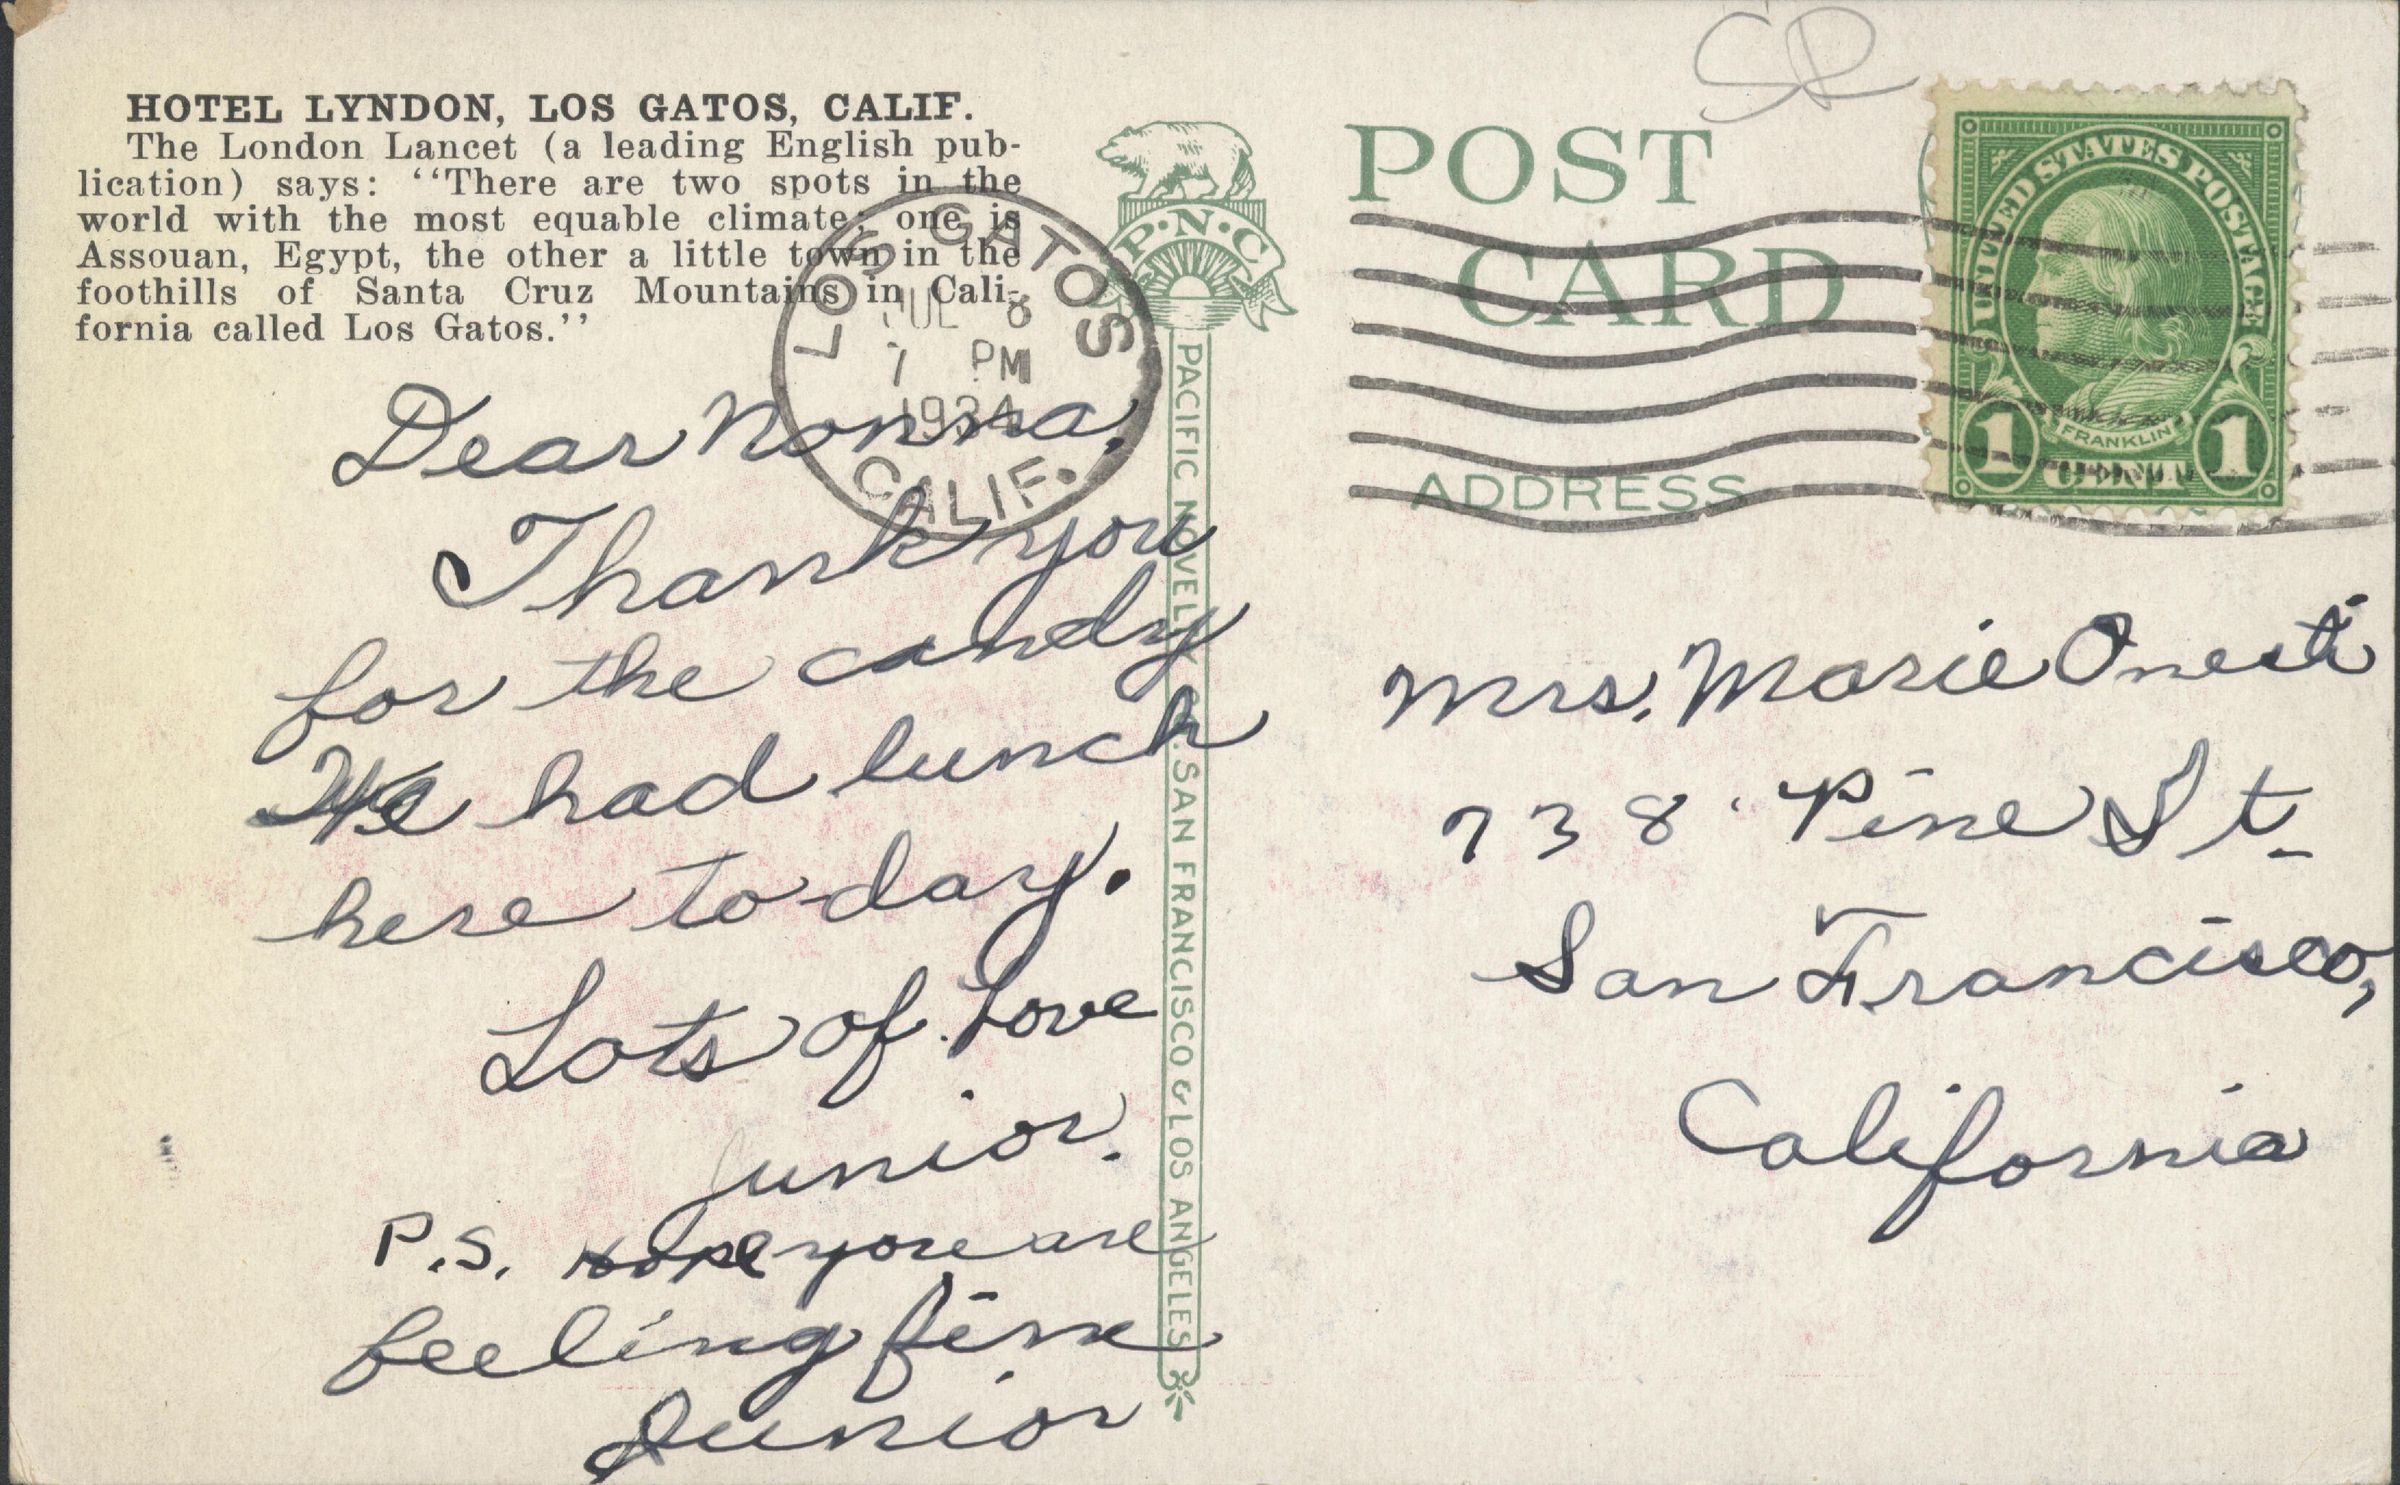 HOTEL LYNDON, LOS GATOS, CALIF.
The London Lancet (a leading English pub-
lication) says: ‘‘There are two spots in the
world with the most equable climate; one is
Assouan, Egypt, the other a little town in the
foothills of Santa Cruz Mountains in Cali-
fornia called Los Gatos.’’
LOS GATOS
JUL 8
7 PM
1934
CALIF.
Dear Nonna,
Thank you
for the candy
We had lunch
here to day.
Lots of Love
Junior.
P.S. Hope you are
feeling fine
Junior
P·N·C
PACIFIC NOVELTY CO. SAN FRANCISCO & LOS ANGELES
SR
POST
CARD
ADDRESS
UNITED STATES POSTAGE
FRANKLIN
1 CENT 1
Mrs. Marie Onesti
738 Pine St.
San Francisco,
California